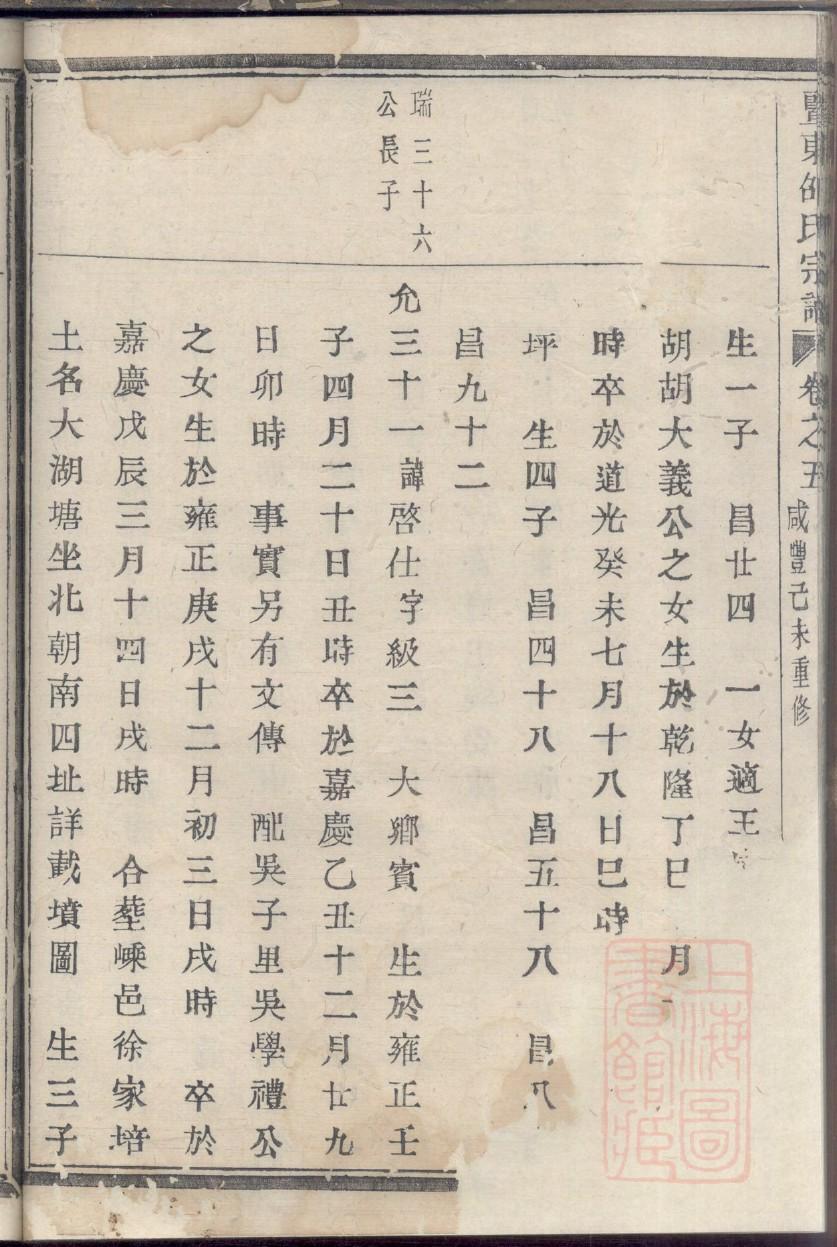 暨東邱氏宗譜 卷之五 咸豐己未重修
生一子 昌廿四 一女適王
胡胡大義公之女生於乾隆丁巳 月
時卒於道光癸未七月十八日巳時
坪 生四子 昌四十八 昌五十八 昌八
昌九十二
瑞三十六
公長子
允三十一諱啓仕字級三 大鄉賓 生於雍正壬
子四月二十日丑時卒於嘉慶乙丑十二月廿九
日卯時 事實另有文傳 配吳子里吳學禮公
之女生於雍正庚戌十二月初三日戌時 卒於
嘉慶戊辰三月十四日戌時 合塟嵊邑徐家培
土名大湖塘坐北朝南四址詳載墳圖 生三子
上海圖書館藏